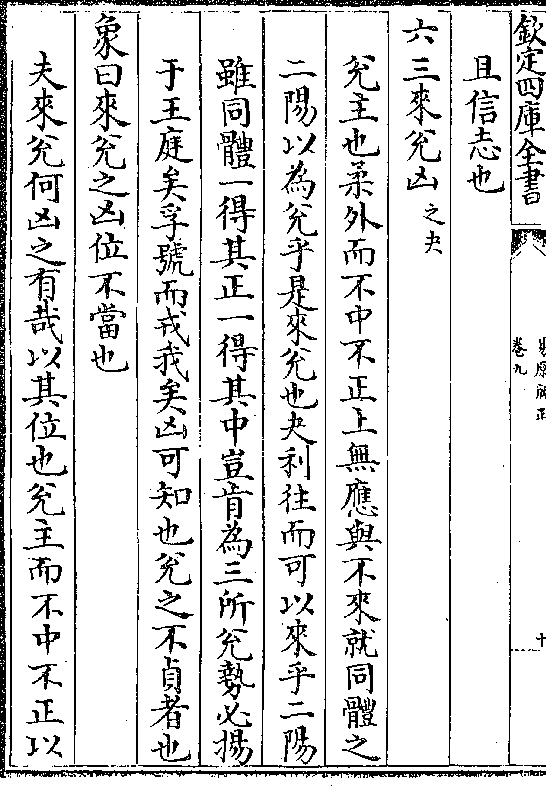 欽定四庫全書
易原就正
卷九
十
且信志也
六三來兊凶 之夬
兊主也柔外而不中不正上無應與不來就同體之
二陽以為兊乎是來兊也夬利往而可以來乎二陽
雖同體一得其正一得其中豈肯為三所兊勢必揚
于王庭矣孚號而戎我矣凶可知也兊之不貞者也
象曰來兊之凶位不當也
夫來兊何凶之有哉以其位也兊主而不中不正以